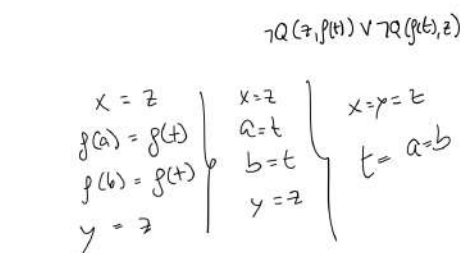 ¬Q(z,f(t)) ∨ ¬Q(f(t),z)
x = z
f(a) = f(t)
f(b) = f(t)
y = z
x=z
a=t
b=t
y=z
x=y=z
t= a=b